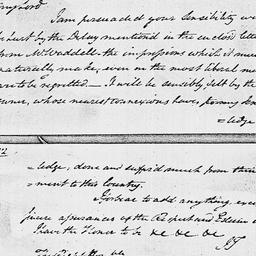 I am persuaded your Sensibility w
hurt by the Delay mentioned in the enclosd lette
from Mr Waddell the impressions which it mus
naturally make, even on the most liberal me
are to be regretted — It will be sensibly felt by th
whose nearest connexions have,
=ledge
=ledge, done and sufferd much from their
=ment to this Country.
Forbear to add anything, exce
assurances of the Respect and Esteem
I have the Honor to be &c &c &c
JJ